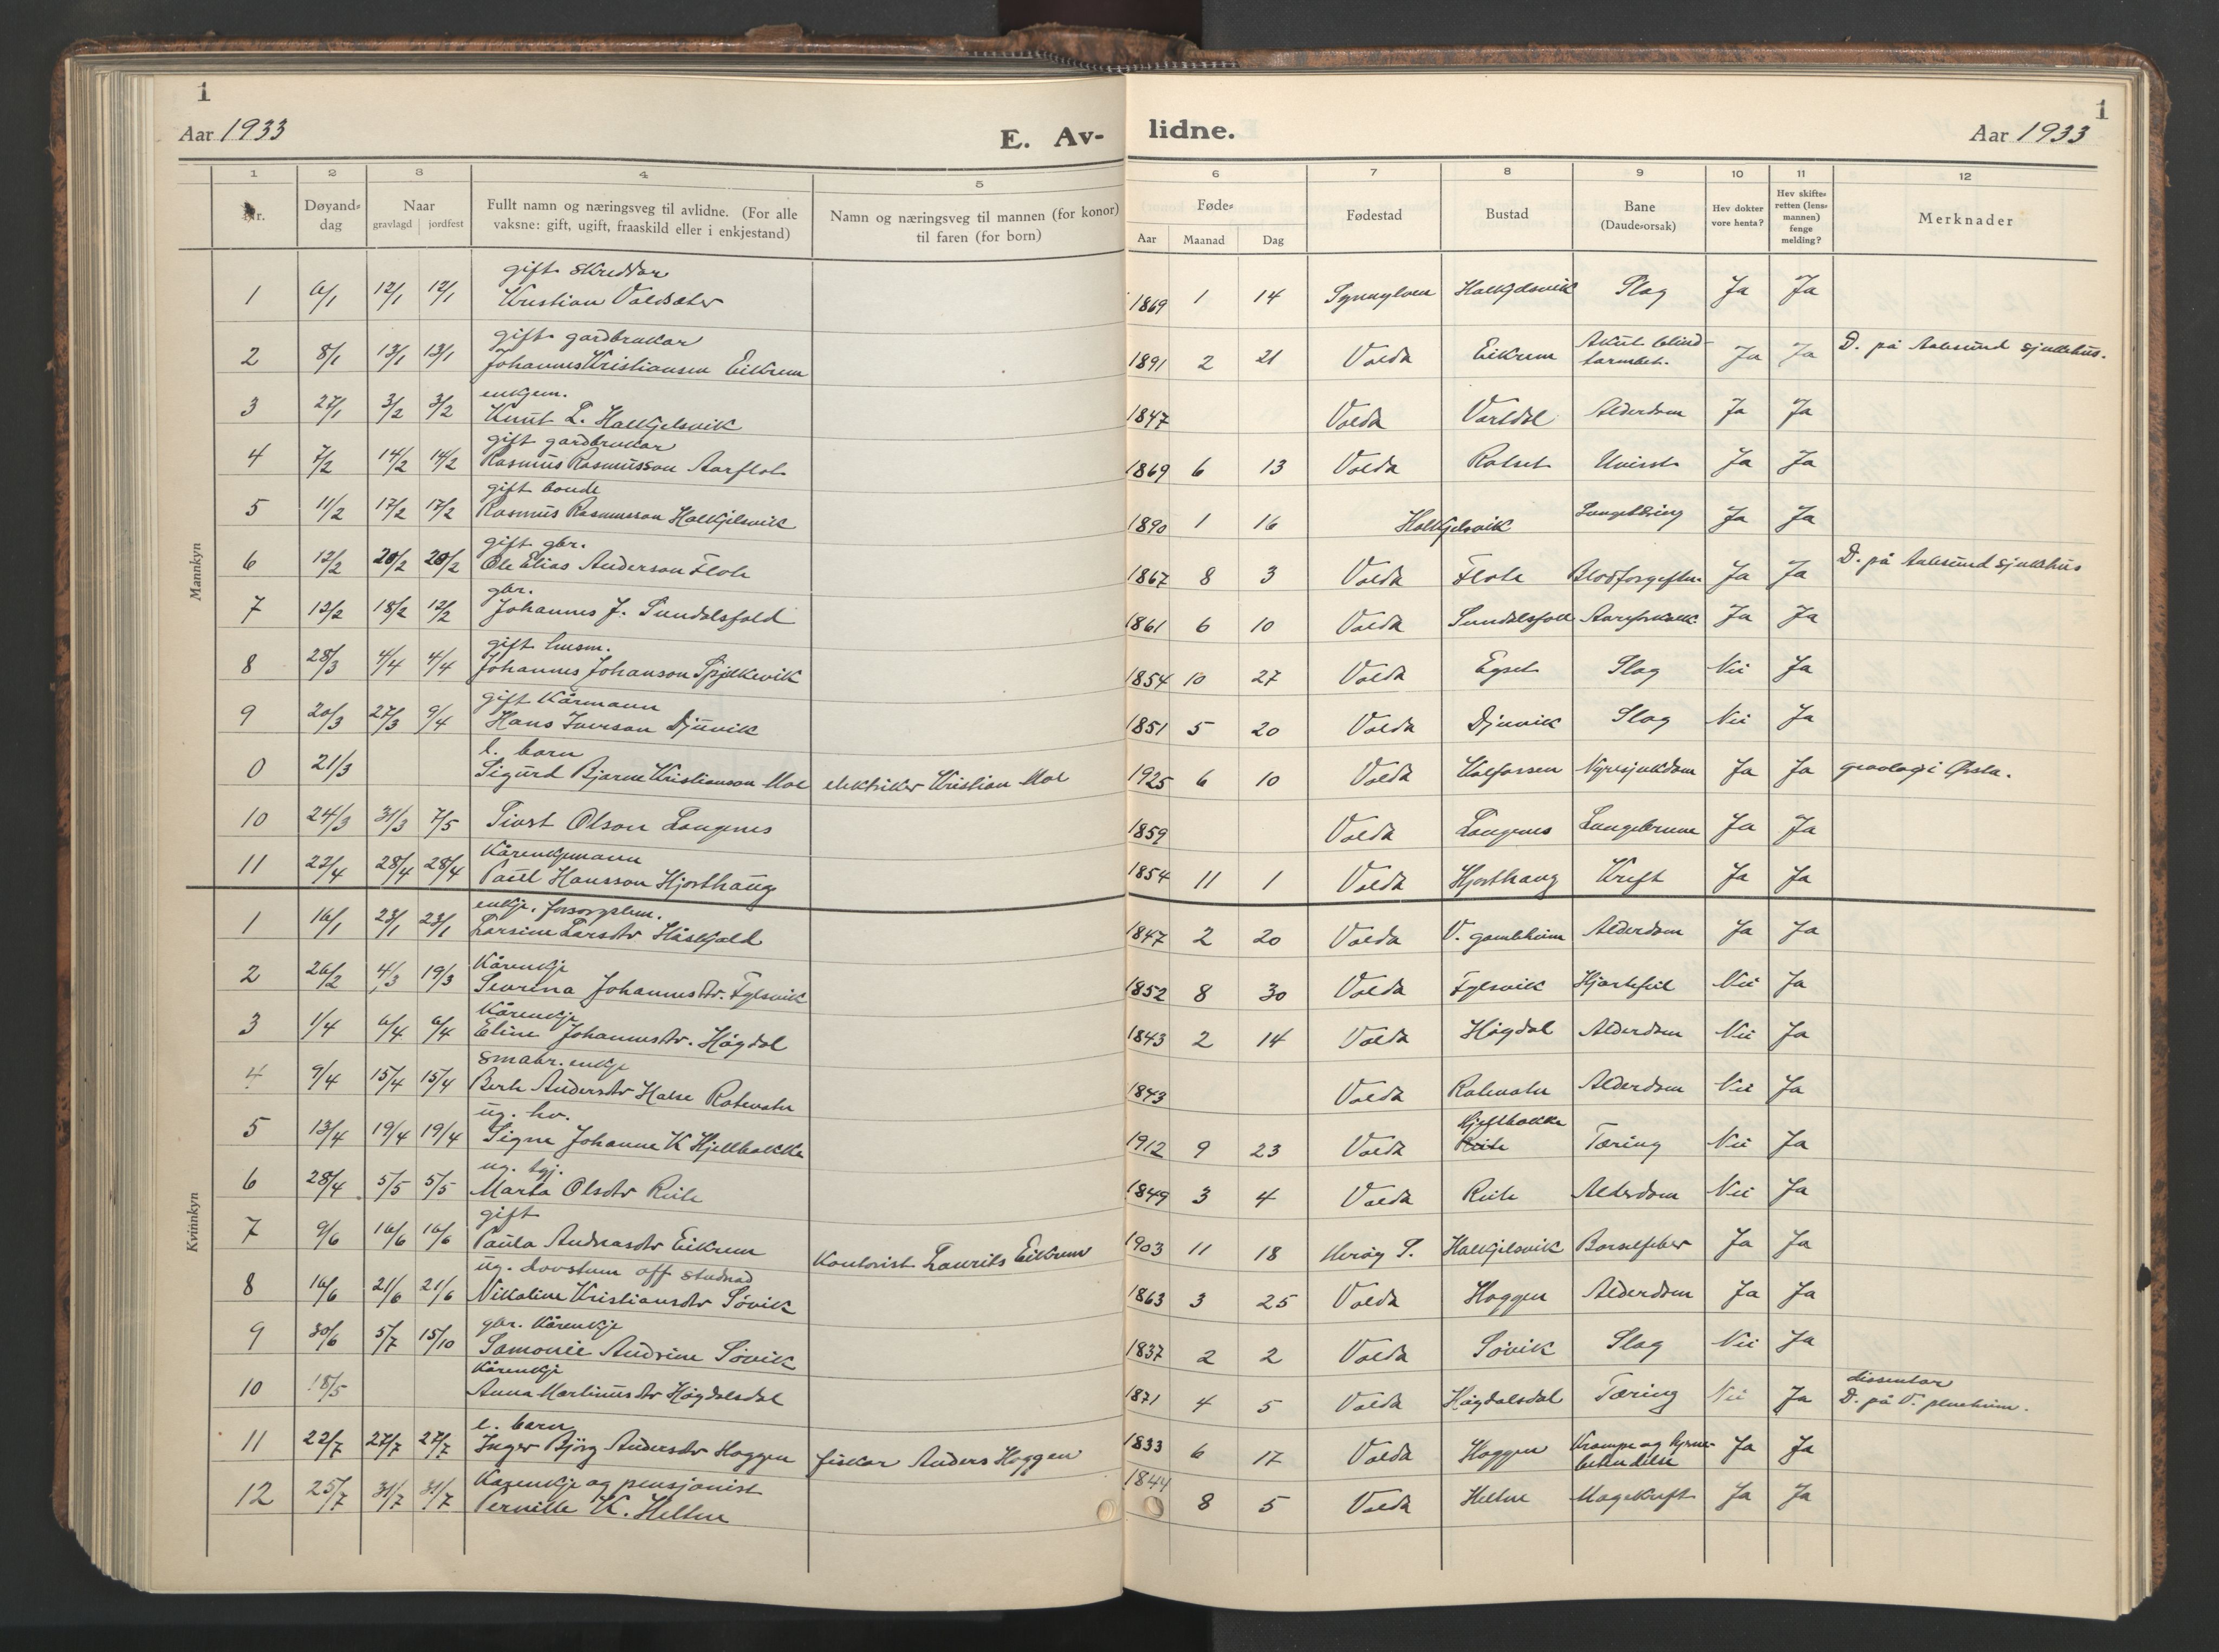 1
Aar 1933
E. Av-
1 2 3 4 5
Nr.
Døyand-
dag
Naar
gravlagd jordfest
Fullt namn og næringsveg til avlidne. (For alle
vaksne: gift, ugift, fraaskild eller i enkjestand)
Namn og næringsveg til mannen (for konor)
til faren (for born)
Mannkyn
gift skreddar
1 6/1 12/1 12/1 Kristian Valdsæter
gift gardbrukar
2 8/1 13/1 13/1 Johannes Kristiansen Eikrem
enkjem.
3 27/1 3/2 3/2 Knut L. Halkjelsvik
gift gardbrukar
4 7/2 14/2 14/2 Rasmus Rasmusson Aarflot
gift bonde
5 11/2 17/2 17/2 Rasmus Rasmusson Halkjelsvik
gift gbr.
6 12/2 20/2 20/2 Ole Elias Anderson Flote
gbr.
7 13/2 18/2 12/2 Johannes J. Sundalsfold
gift husm.
8 28/3 4/4 4/4 Johannes Johanson Spjelkevik
gift kårmann
9 20/3 27/3 9/4 Hans Iverson Djuvik
e. barn
0 21/3 Sigurd Bjarne Kristianson Moe elektriker Kristian Moe
10 24/3 31/3 7/5 Sivert Olson Langnes
Kårenkjemann
11 22/4 28/4 28/4 Paul Hansson Hjorthaug
Kvinnkyn
enkje, forsorgslem.
1 16/1 23/1 23/1 Larsine Larsdtr Håskjold
Kårenkje
2 26/2 4/3 19/3 Severina Johannesdtr. Fylsvik
Kårenkje
3 1/4 6/4 6/4 Eline Johannesdtr. Høgdal
smabr. enkje
4 9/4 15/4 15/4 Berte Andersdtr Halse Rotevatn
ug. hv.
5 13/4 19/4 19/4 Signe Johanne K Hjellbakke
ug. tgj.
6 28/4 5/5 5/5 Marta Olsdtr Riite
gift
7 9/6 16/6 16/6 Paula Andreasdtr Eikrem kontorist Laurits Eikrem
ug. dovstum off studnad
8 16/6 21/6 21/6 Nikoline Kristiansdtr Søvik
gbr. Kårenkje
9 30/6 5/7 15/10 Samonie Andrine Søvik
Kårenkje
10 18/5 Anna Martinusdtr Høgdalsdal
e. barn
11 22/7 27/7 27/7 Inger Bjørg Andersdtr Hoggen fiskar Anders Hoggen
Kårenkje og pensjonist
12 25/7 31/7 31/7 Pernille K. Heltne
1
lidne.
Aar 1933
6 7 8 9 10 11 12
Føde-
Aar Maanad Dag
Fødestad
Bustad
Bane
(Daude-orsak)
Hev dokter
vore henta?
Hev skifte-
retten (lens-
mannen)
fenge
melding?
Merknader
1869 1 14 Synnylven Halkjelsvik Slag Ja Ja
1891 2 21 Volda Eikrem Akut blind-
tarmbet. Ja Ja D. på Aalesund sjukehus.
1847 Volda Vartdal Alderdom Ja Ja
1869 6 13 Volda Rotset Uvisst Ja Ja
1890 1 16 Halkjelsvik Lungetæring Ja Ja
1867 8 3 Volda Flote Blodforgiftn. Ja Ja D. på Aalesund sjukehus
1861 6 10 Volda Sundalsfoll Aareforkalk. Ja Ja
1854 10 27 Volda Egset Slag Nei Ja
1851 5 20 Volda Djuvik Slag Nei Ja
1925 6 10 Volda Kolfossen Nyresjukdom Ja Ja gravlagd i Ørsta.
1859 Volda Langnes Lungebrune Ja Ja
1854 11 1 Volda Hjorthaug Kreft Ja Ja
1847 2 20 Volda V. gamleheim Alderdom Ja Ja
1852 8 30 Volda Fylsvik Hjartefeil Nei Ja
1843 2 14 Volda Høgdal Alderdom Nei Ja
1843 Volda Rotevatn Alderdom Nei Ja
Hjellbakke
1912 9 23 Volda Riite Tæring Nei Ja
1849 3 4 Volda Riite Alderdom Nei Ja
1903 11 18 Herøy S. Halkjelsvik Barselfeber Ja Ja
1863 3 25 Volda Hoggen Alderdom Ja Ja
1837 2 2 Volda Søvik Slag Nei Ja
dissentar
1871 4 5 Volda Høgdalsdal Tæring Nei Ja D. på V. pleieheim.
1833 6 17 Volda Hoggen Krampe og hjerne-
betendelse Ja Ja
1844 8 5 Volda Heltne Magekreft Ja Ja